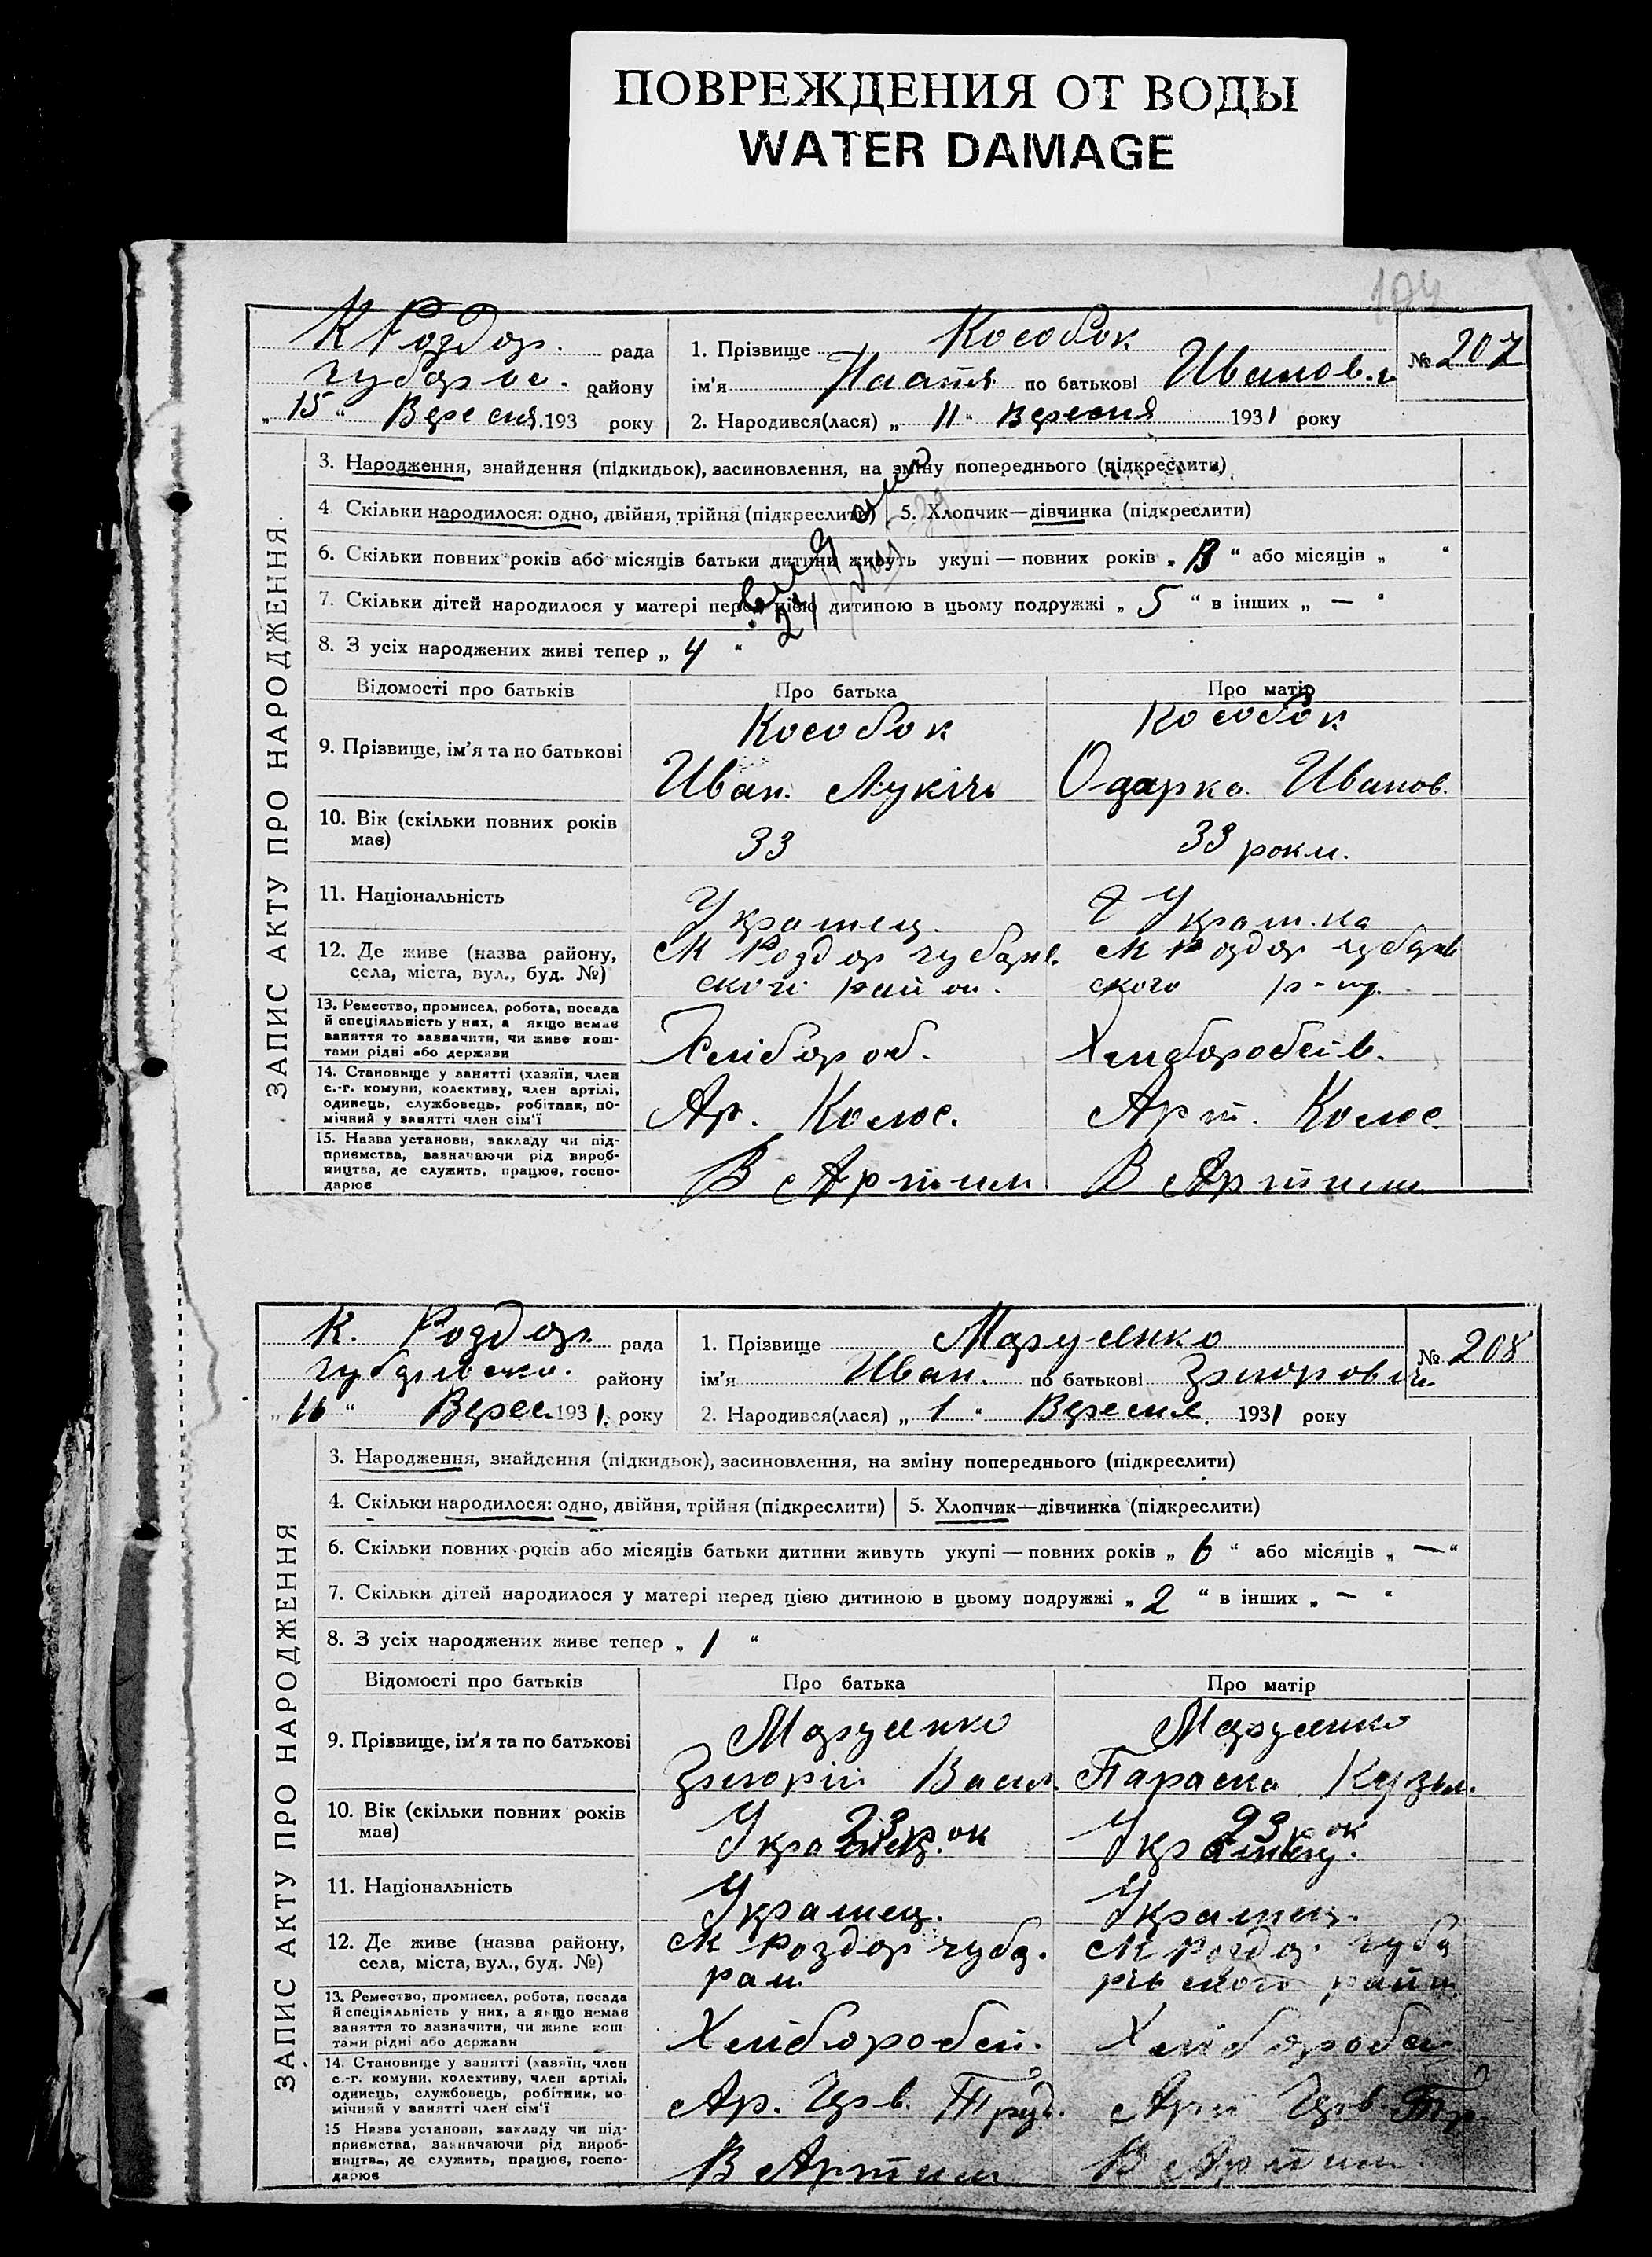 ПОВРЕЖДЕНИЯ ОТ ВОДЫ
WATER DAMAGE
104
К Роздор. рада
1. Прізвище Кособок
№ 207
району
ім'я Настя по батькові Иванов.
„ 15 “ Вересня 193 року
2. Народився(лася) „ 11 “ Вересня 1931 року
ЗАПИС АКТУ ПРО НАРОДЖЕННЯ.
3. Народження, знайдення (підкидьок), засиновлення, на зміну попереднього (підкреслити)
4. Скільки народилося: одно, двійня, трійня (підкреслити)
5. Хлопчик—дівчинка (підкреслити)
6. Скільки повних років або місяців батьки дитини живуть укупі — повних років „ “ або місяців „ “
7. Скільки дітей народилося у матері перед цією дитиною в цьому подружжі „ 5 “ в інших „ — “
8. З усіх народжених живі тепер „ 4 “
Відомості про батьків
Про батька
Про матір
9. Прізвище, ім'я та по батькові
Кособок
Иван. Лукічь
Кособок
Одарка Иванов.
10. Вік (скільки повних років
має)
33
33 роки.
11. Національність
Украінец.
Украін.ка
12. Де живе (назва району,
села, міста, вул., буд. №)
ского район.
ского р-ну.
13. Ремество, промисел, робота, посада
й спеціяльність у них, а якщо немає
заняття то зазначити, чи живе кош-
тами рідні або держави
Хлібороб.
14. Становище у занятті (хазяїн, член
с.-г. комуни, колективу, член артілі,
одинець, службовець, робітник, по-
мічний у занятті член сім'ї
Ар. Колос.
Арт. Колос.
15. Назва установи, закладу чи під-
приємства, зазначаючи рід вироб-
ництва, де служить, працює, госпо-
дарює
В Артили
В Артили
К. Роздор. рада
1. Прізвище Марушко
№ 208
району
ім'я Иван. по батькові Григорович.
„ 16 “ Верес. 1931. року
2. Народився(лася) „ 1 “ Вересня. 1931 року
ЗАПИС АКТУ ПРО НАРОДЖЕННЯ
3. Народження, знайдення (підкидьок), засиновлення, на зміну попереднього (підкреслити)
4. Скільки народилося: одно, двійня, трійня (підкреслити)
5. Хлопчик—дівчинка (підкреслити)
6. Скільки повних років або місяців батьки дитини живуть укупі — повних років „ 6 “ або місяців „ — “
7. Скільки дітей народилося у матері перед цією дитиною в цьому подружжі „ 2 “ в інших „ — “
8. З усіх народжених живе тепер „ 1 “
Відомості про батьків
Про батька
Про матір
9. Прізвище, ім'я та по батькові
Григорій Васил.
Параска Кузьм.
10. Вік (скільки повних років
має)
23 рок
23 рок
11. Національність
Украінец.
Украінец.
12. Де живе (назва району,
села, міста, вул., буд. №)
13. Ремество, промисел, робота, посада
й спеціяльність у них, а якщо немає
заняття то зазначити, чи живе кош
тами рідні або держави
14. Становище у занятті (хазяїн, член
с.-г. комуни, колективу, член артілі,
одинець, службовець, робітник, по
мічний у занятті член сім'ї
15 Назва установи, закладу чи під-
приємства, зазначаючи рід вироб-
ництва, де служить, працює, госпо-
дарює
В Артили
В Артили